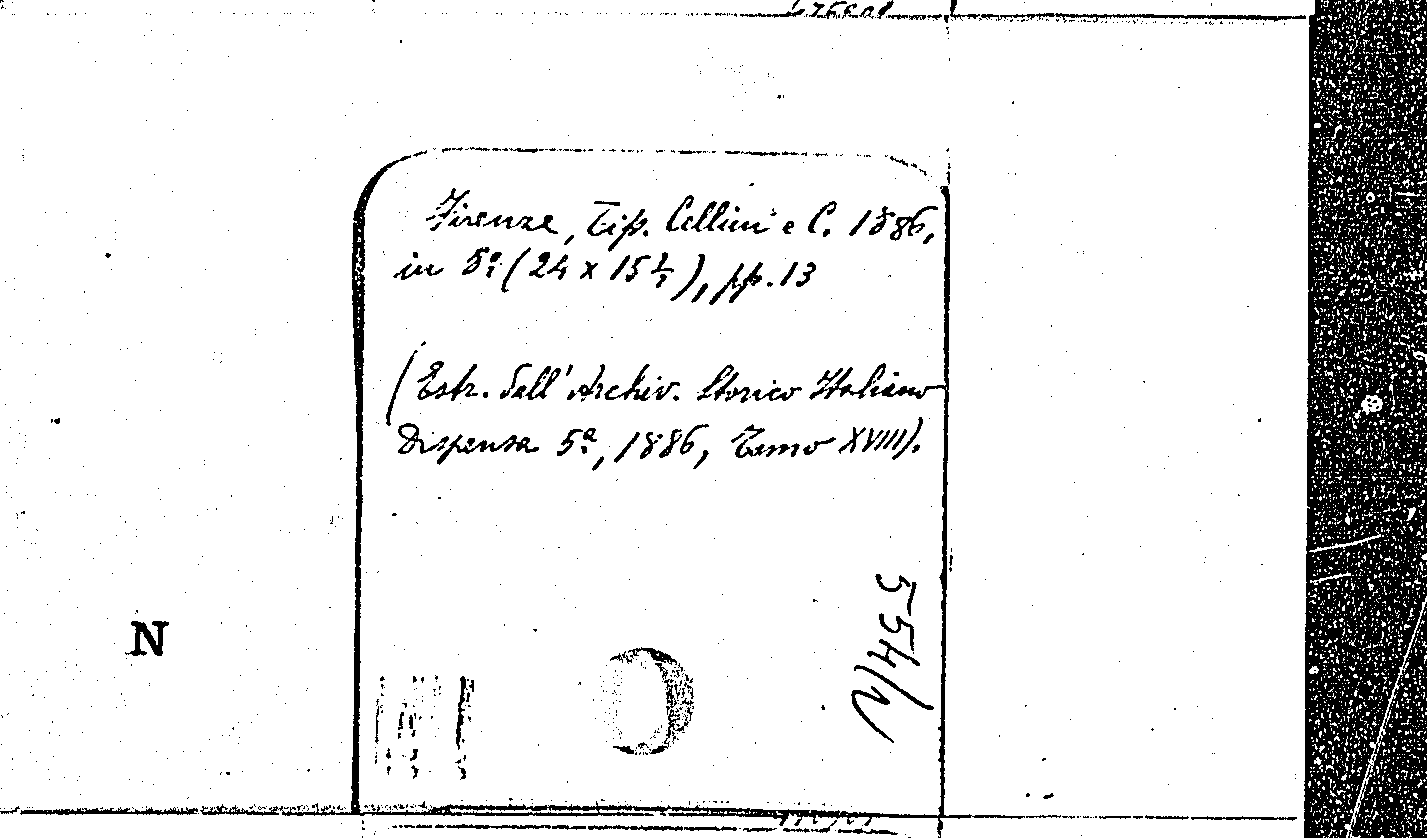 Firenze, Tip. Cellini e C. 1886,
in 8º (24 x 15½), pp. 13
(Estr. dall'Archiv. Storico Italiano
Dispensa 5ª, 1886, Tomo XVIII).
554/2
N